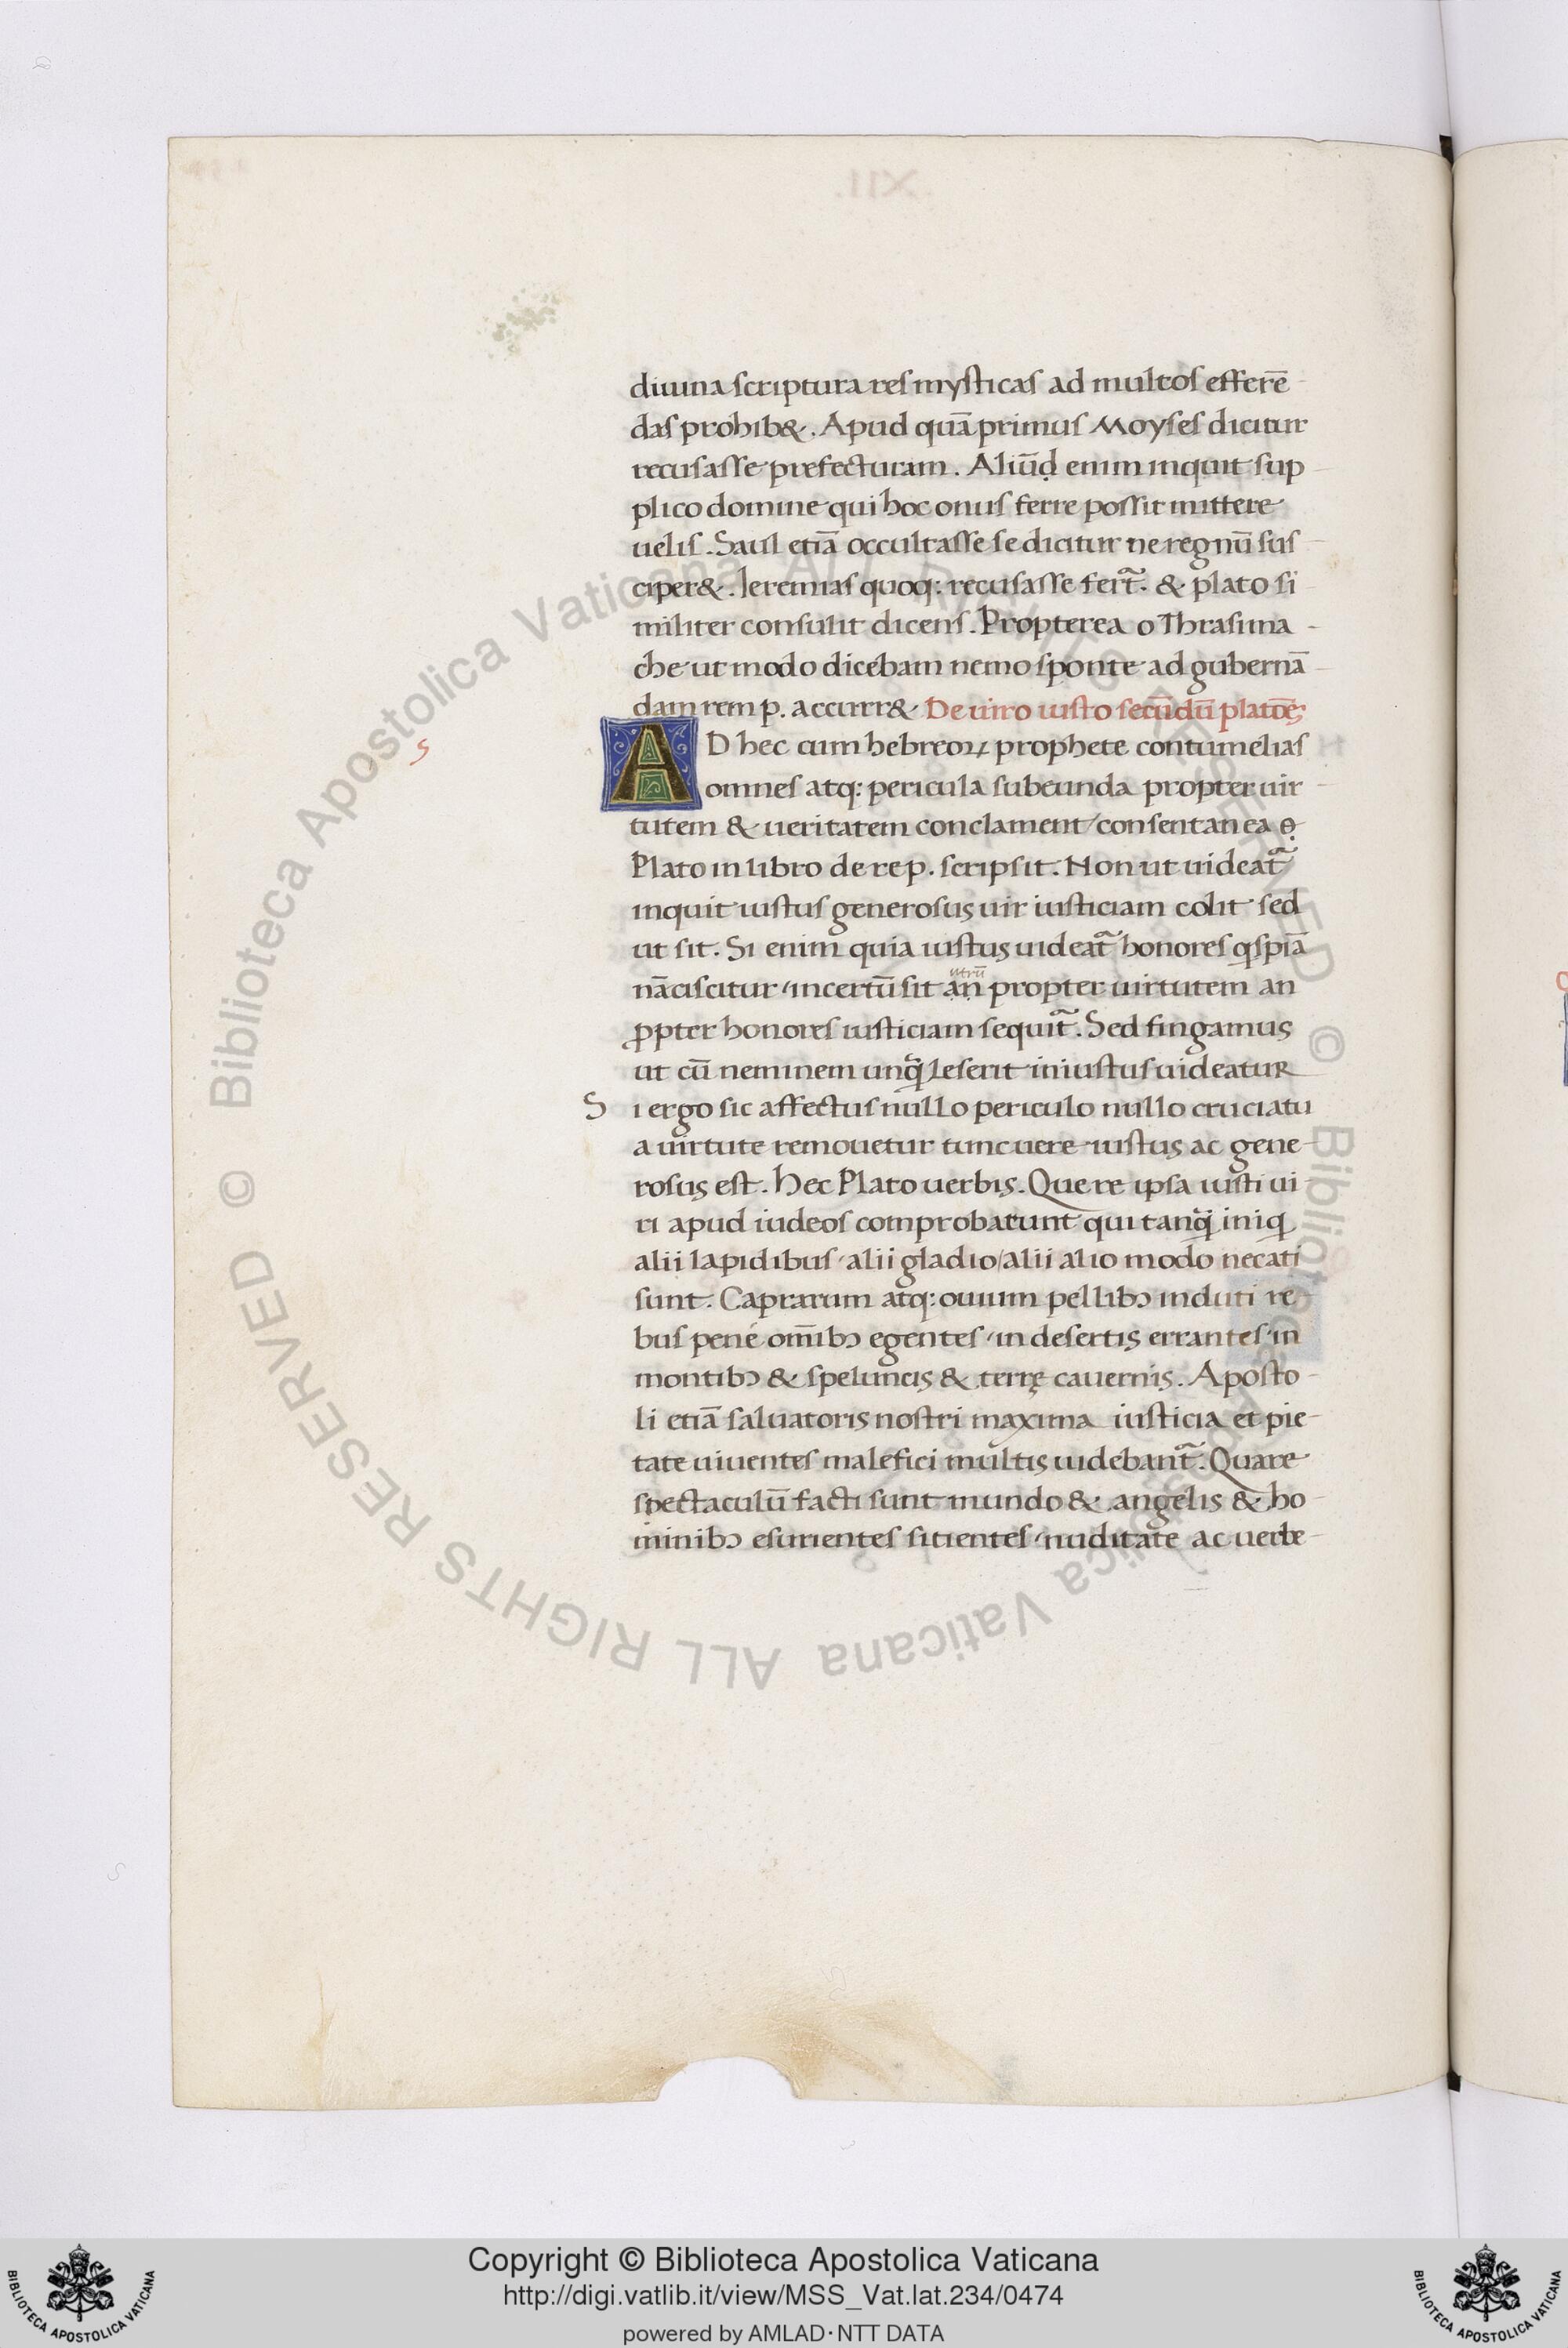 diuina scriptura res mysticas ad multos efferē
das prohib&. Apud quā primus Moyses dicitur
recusasse prefecturam. Aliūḍ enim inquit sup
plico domine qui hoc onus ferre possit mittere
uelis. Saul etiā occultasse se dicitur ne regnū sus
ciper&. Ieremias quoq: recusasse fert̃. & plato si
militer consulit dicens. Propterea o Thrasima
che ut modo dicebam nemo sponte ad gubernā
dam rem p. accurr& De uiro iusto secūdū platōēs
5
AD hec cum hebreoꝝ prophete contumelias
omnes atq: pericula subeunda propter uir
tutem & ueritatem conclament consentanea
Plato in libro de re p. scripsit. Non ut uideat̃
inquit iustus generosus uir iusticiam colit sed
ut sit. Si enim quia iustus uideat̃ honores qspiā
utrū
nāciscitur incertū sit an propter uirtutem an
ꝓpter honores iusticiam sequit̃. Sed fingamus
ut cū neminem unq̃ leserit iniustus uideatur
Si ergo sic affectus nullo periculo nullo cruciatu
a uirtute remouetur tunc uere iustus ac gene
rosus est. hec Plato uerbis. Que re ipsa iusti ui
ri apud iudeos comprobarunt qui tanq̃ iniq
alii lapidibus alii gladio/alii alio modo necati
sunt. Caprarum atq: ouium pellibꝫ induti re
bus pene om̄ibꝫ egentes in desertis errantes in
montibꝫ & speluncis & terrę cauernis. Aposto
li etiā saluatoris nostri maxima iusticia et pie
tate uiuentes malefici multis uidebant̃. Quare
spectaculū facti sunt mundo & angelis & ho
minibꝫ esurientes sitientes nuditate ac uerbe
Copyright © Biblioteca Apostolica Vaticana
http://digi.vatlib.it/view/MSS_Vat.lat.234/0474
powered by AMLAD·NTT DATA
BIBLIOTECA APOSTOLICA VATICANA
BIBLIOTECA APOSTOLICA VATICANA
© Biblioteca Apostolica Vaticana ALL RIGHTS RESERVED © Biblioteca Apostolica Vaticana ALL RIGHTS RESERVED